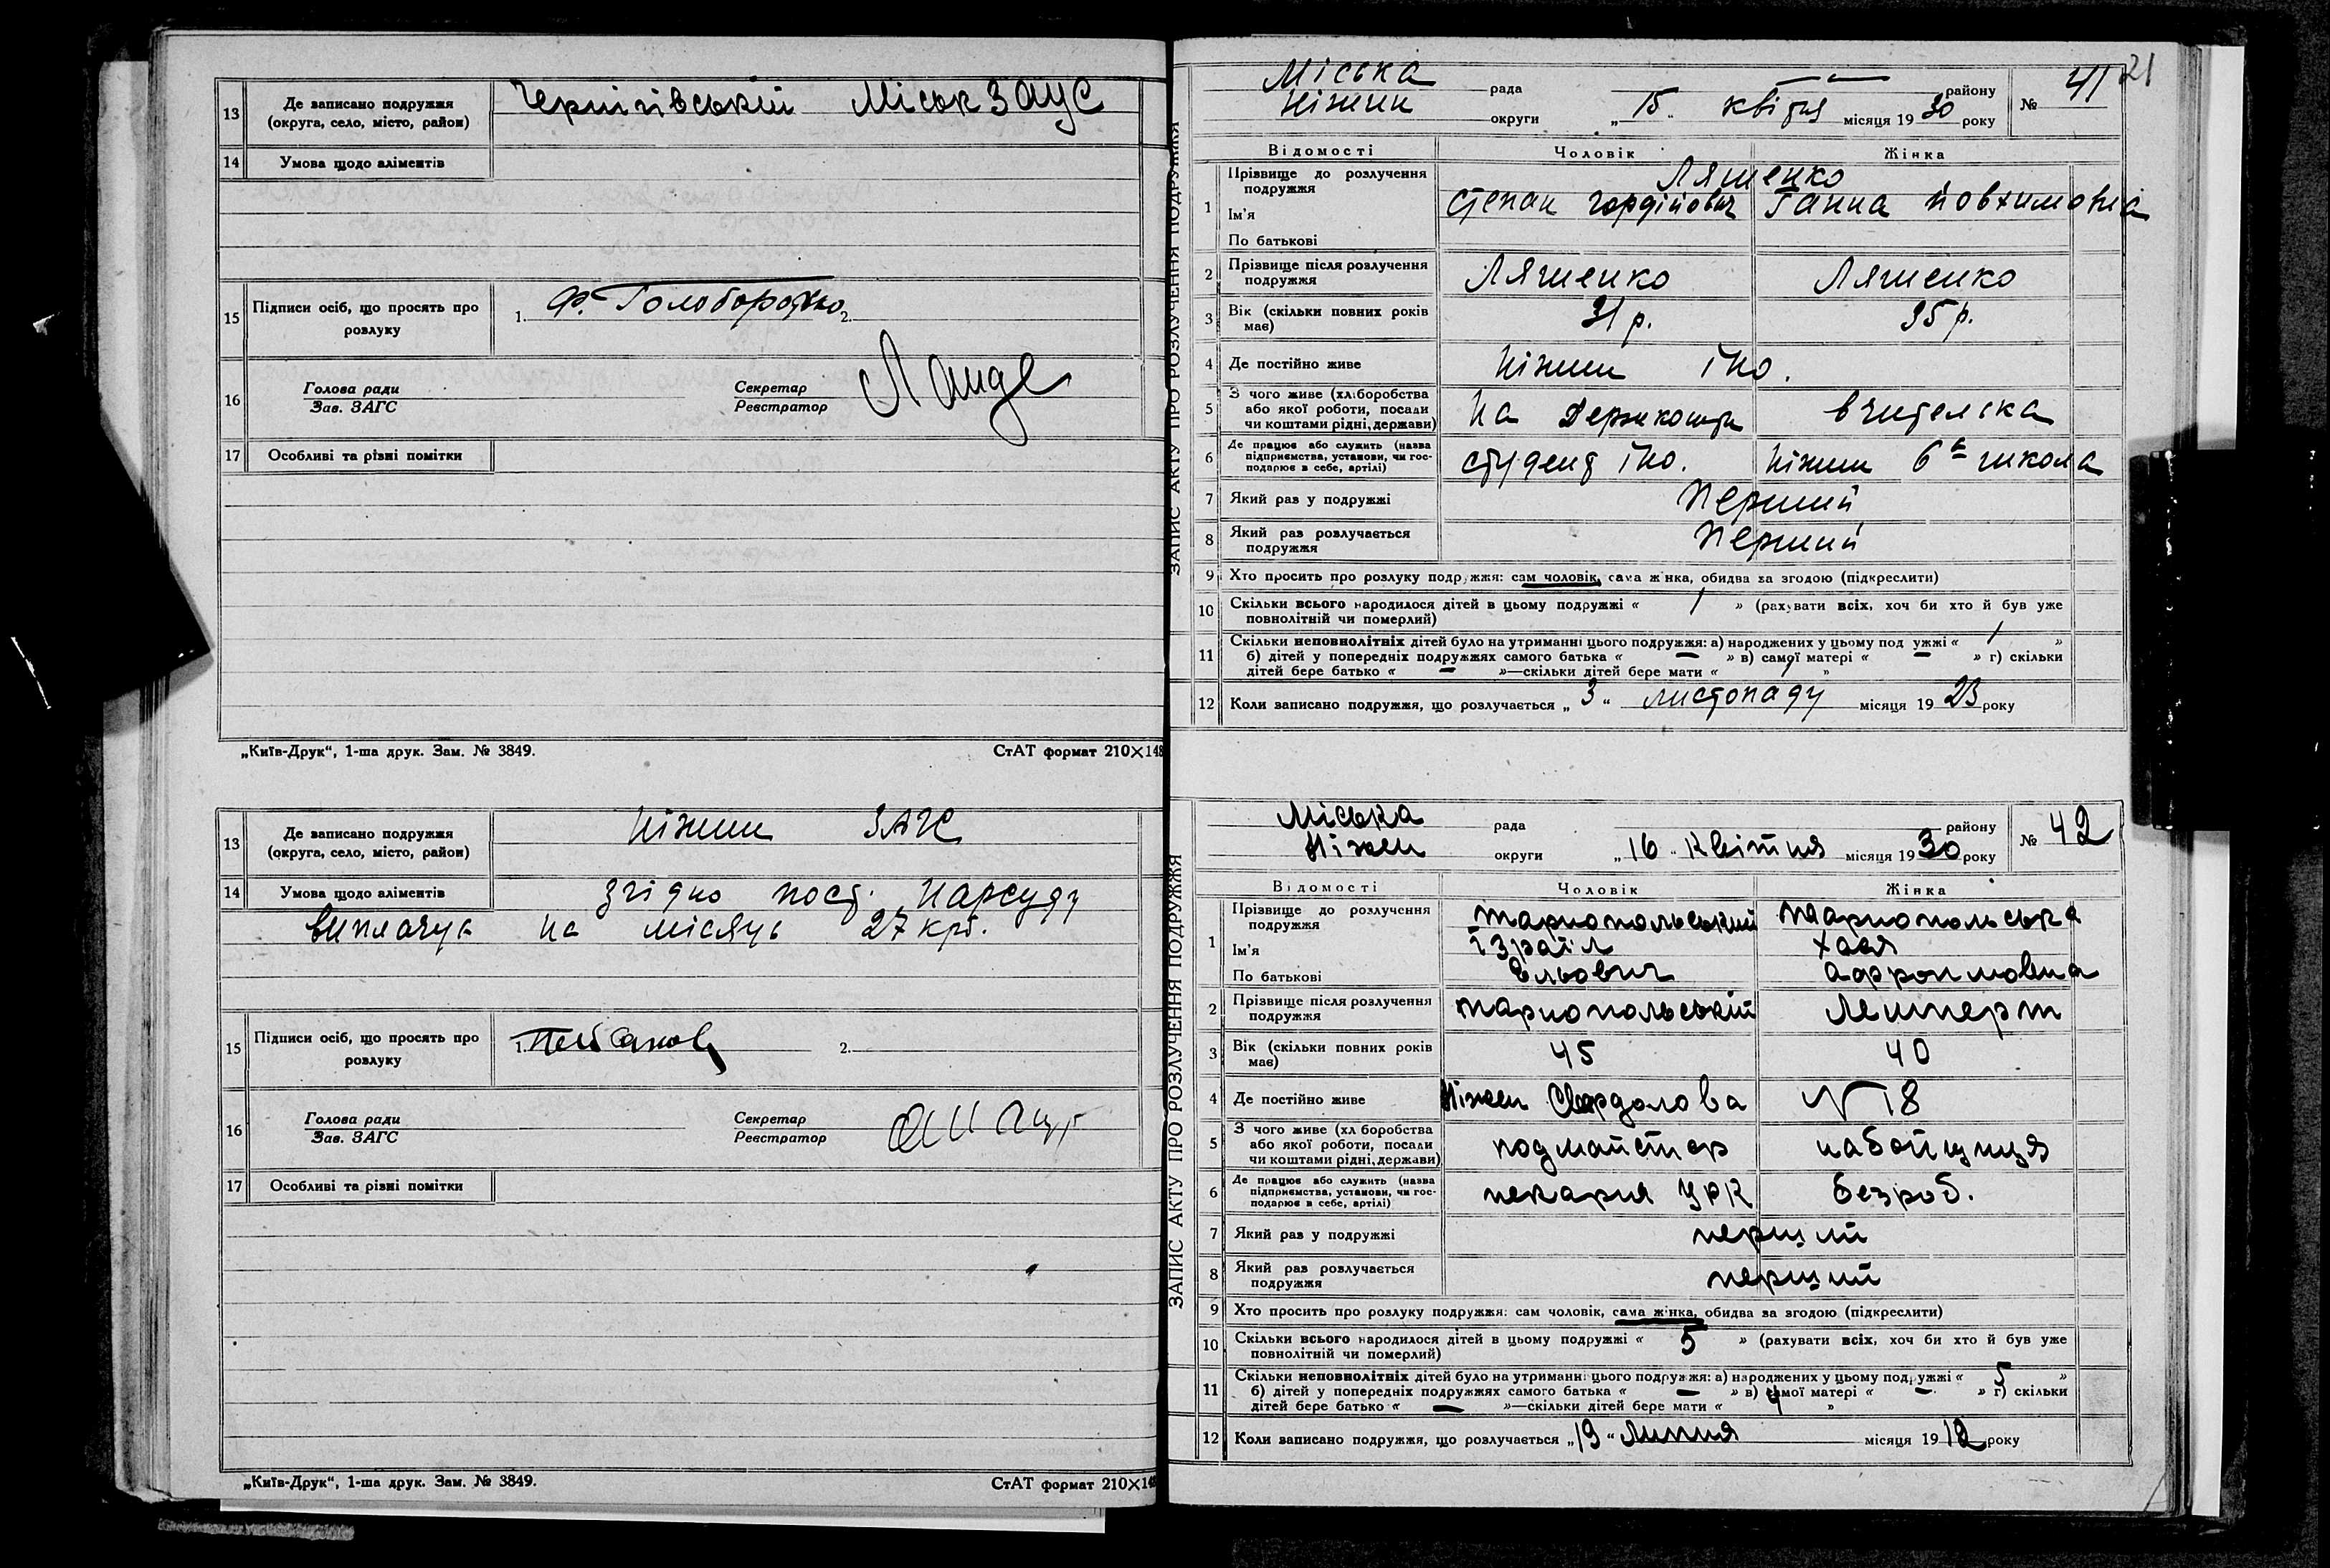 13 Де записано подружжя (округа, село, місто, район) Чернігівський МіськЗАГС
14 Умова щодо аліментів
15 Підписи осіб, що просять про розлуку 1. Ф. Голобородько 2.
16 Голова ради Секретар
Зав. ЗАГС Реєстратор
17 Особливі та різні помітки
„Київ-Друк“, 1-ша друк. Зам. № 3849. СтАТ формат 210×148
13 Де записано подружжя (округа, село, місто, район) Ніжин ЗАГС
14 Умова щодо аліментів згідно пост. Нарсуду
виплачує на місяць 27 крб.
15 Підписи осіб, що просять про розлуку 1. 2.
16 Голова ради Секретар
Зав. ЗАГС Реєстратор
17 Особливі та різні помітки
„Київ-Друк“, 1-ша друк. Зам. № 3849. СтАТ формат 210×14
21
ЗАПИС АКТУ ПРО РОЗЛУЧЕННЯ ПОДРУЖЖЯ
Міська рада — району № 41
Ніжин округи „ 15 “ квітня місяця 19 30 року
Відомості Чоловік Жінка
1 Прізвище до розлучення подружжя Ляшенко
Ім'я Степан Гордійович Ганна Йовхимовна
По батькові
2 Прізвище після розлучення подружжя Ляшенко Ляшенко
3 Вік (скільки повних років має) 31 р. 35 р.
4 Де постійно живе Ніжин ІНО.
5 З чого живе (хліборобства або якої роботи, посади чи коштами рідні, держави) На Держкошти вчителька
6 Де працює або служить (назва підприємства, установи, чи господарює в себе, артілі) студент ІНО. Ніжин 6а школа
7 Який раз у подружжі Перший
8 Який раз розлучається подружжя Перший
9 Хто просить про розлуку подружжя: сам чоловік, сама жінка, обидва за згодою (підкреслити)
10 Скільки всього народилося дітей в цьому подружжі « 1 » (рахувати всіх, хоч би хто й був уже
повнолітній чи померлий)
11 Скільки неповнолітніх дітей було на утриманні цього подружжя: а) народжених у цьому подружжі « 1 »
б) дітей у попередніх подружжях самого батька « — » в) самої матері « — » г) скільки
дітей бере батько « — »—скільки дітей бере мати « 1 »
12 Коли записано подружжя, що розлучається „ 3 “ листопаду місяця 19 23 року
ЗАПИС АКТУ ПРО РОЗЛУЧЕННЯ ПОДРУЖЖЯ
Міська рада району № 42
Ніжен округи „ 16 “ Квітня місяця 19 30 року
Відомості Чоловік Жінка
1 Прізвище до розлучення подружжя Тарнопольський Тарнопольська
Ім'я Ізраїл Хася
По батькові Ельович Афроимовна
2 Прізвище після розлучення подружжя Тарнопольській
3 Вік (скільки повних років має) 45 40
4 Де постійно живе Ніжен № 18
5 З чого живе (хліборобства або якої роботи, посади чи коштами рідні, держави) подмайстор набойщиця
6 Де працює або служить (назва підприємства, установи, чи господарює в себе, артілі) пекарня безроб.
7 Який раз у подружжі перщий
8 Який раз розлучається подружжя перщий
9 Хто просить про розлуку подружжя: сам чоловік, сама жінка, обидва за згодою (підкреслити)
10 Скільки всього народилося дітей в цьому подружжі « 5 » (рахувати всіх, хоч би хто й був уже
повнолітній чи померлий)
11 Скільки неповнолітніх дітей було на утриманні цього подружжя: а) народжених у цьому подружжі « 5 »
б) дітей у попередніх подружжях самого батька « — » в) самої матері « — » г) скільки
дітей бере батько « — »—скільки дітей бере мати « 4 »
12 Коли записано подружжя, що розлучається „ 19 “ Липня місяця 19 12 року